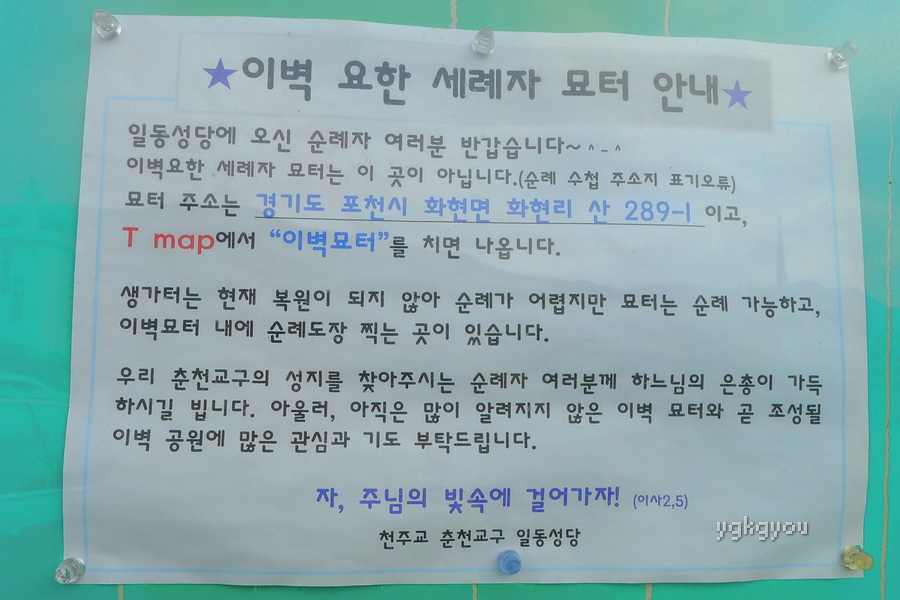 ★이벽 요한 세례자 묘터 안내★
일동성당에 오신 순례자 여러분 반갑습니다~^-^
이벽요한 세례자 묘터는 이 곳이 아닙니다.(순례 수첩 주소지 표기오류)
묘터 주소는 경기도 포천시 화현면 화현리 산 289-1 이고,
T map에서 “이벽묘터”를 치면 나옵니다.
생가터는 현재 복원이 되지 않아 순례가 어렵지만 묘터는 순례 가능하고,
이벽묘터 내에 순례도장 찍는 곳이 있습니다.
우리 춘천교구의 성지를 찾아주시는 순례자 여러분께 하느님의 은총이 가득
하시길 빕니다. 아울러, 아직은 많이 알려지지 않은 이벽 묘터와 곧 조성될
이벽 공원에 많은 관심과 기도 부탁드립니다.
자, 주님의 빛속에 걸어가자! (이사2,5)
천주교 춘천교구 일동성당
ygkgyou